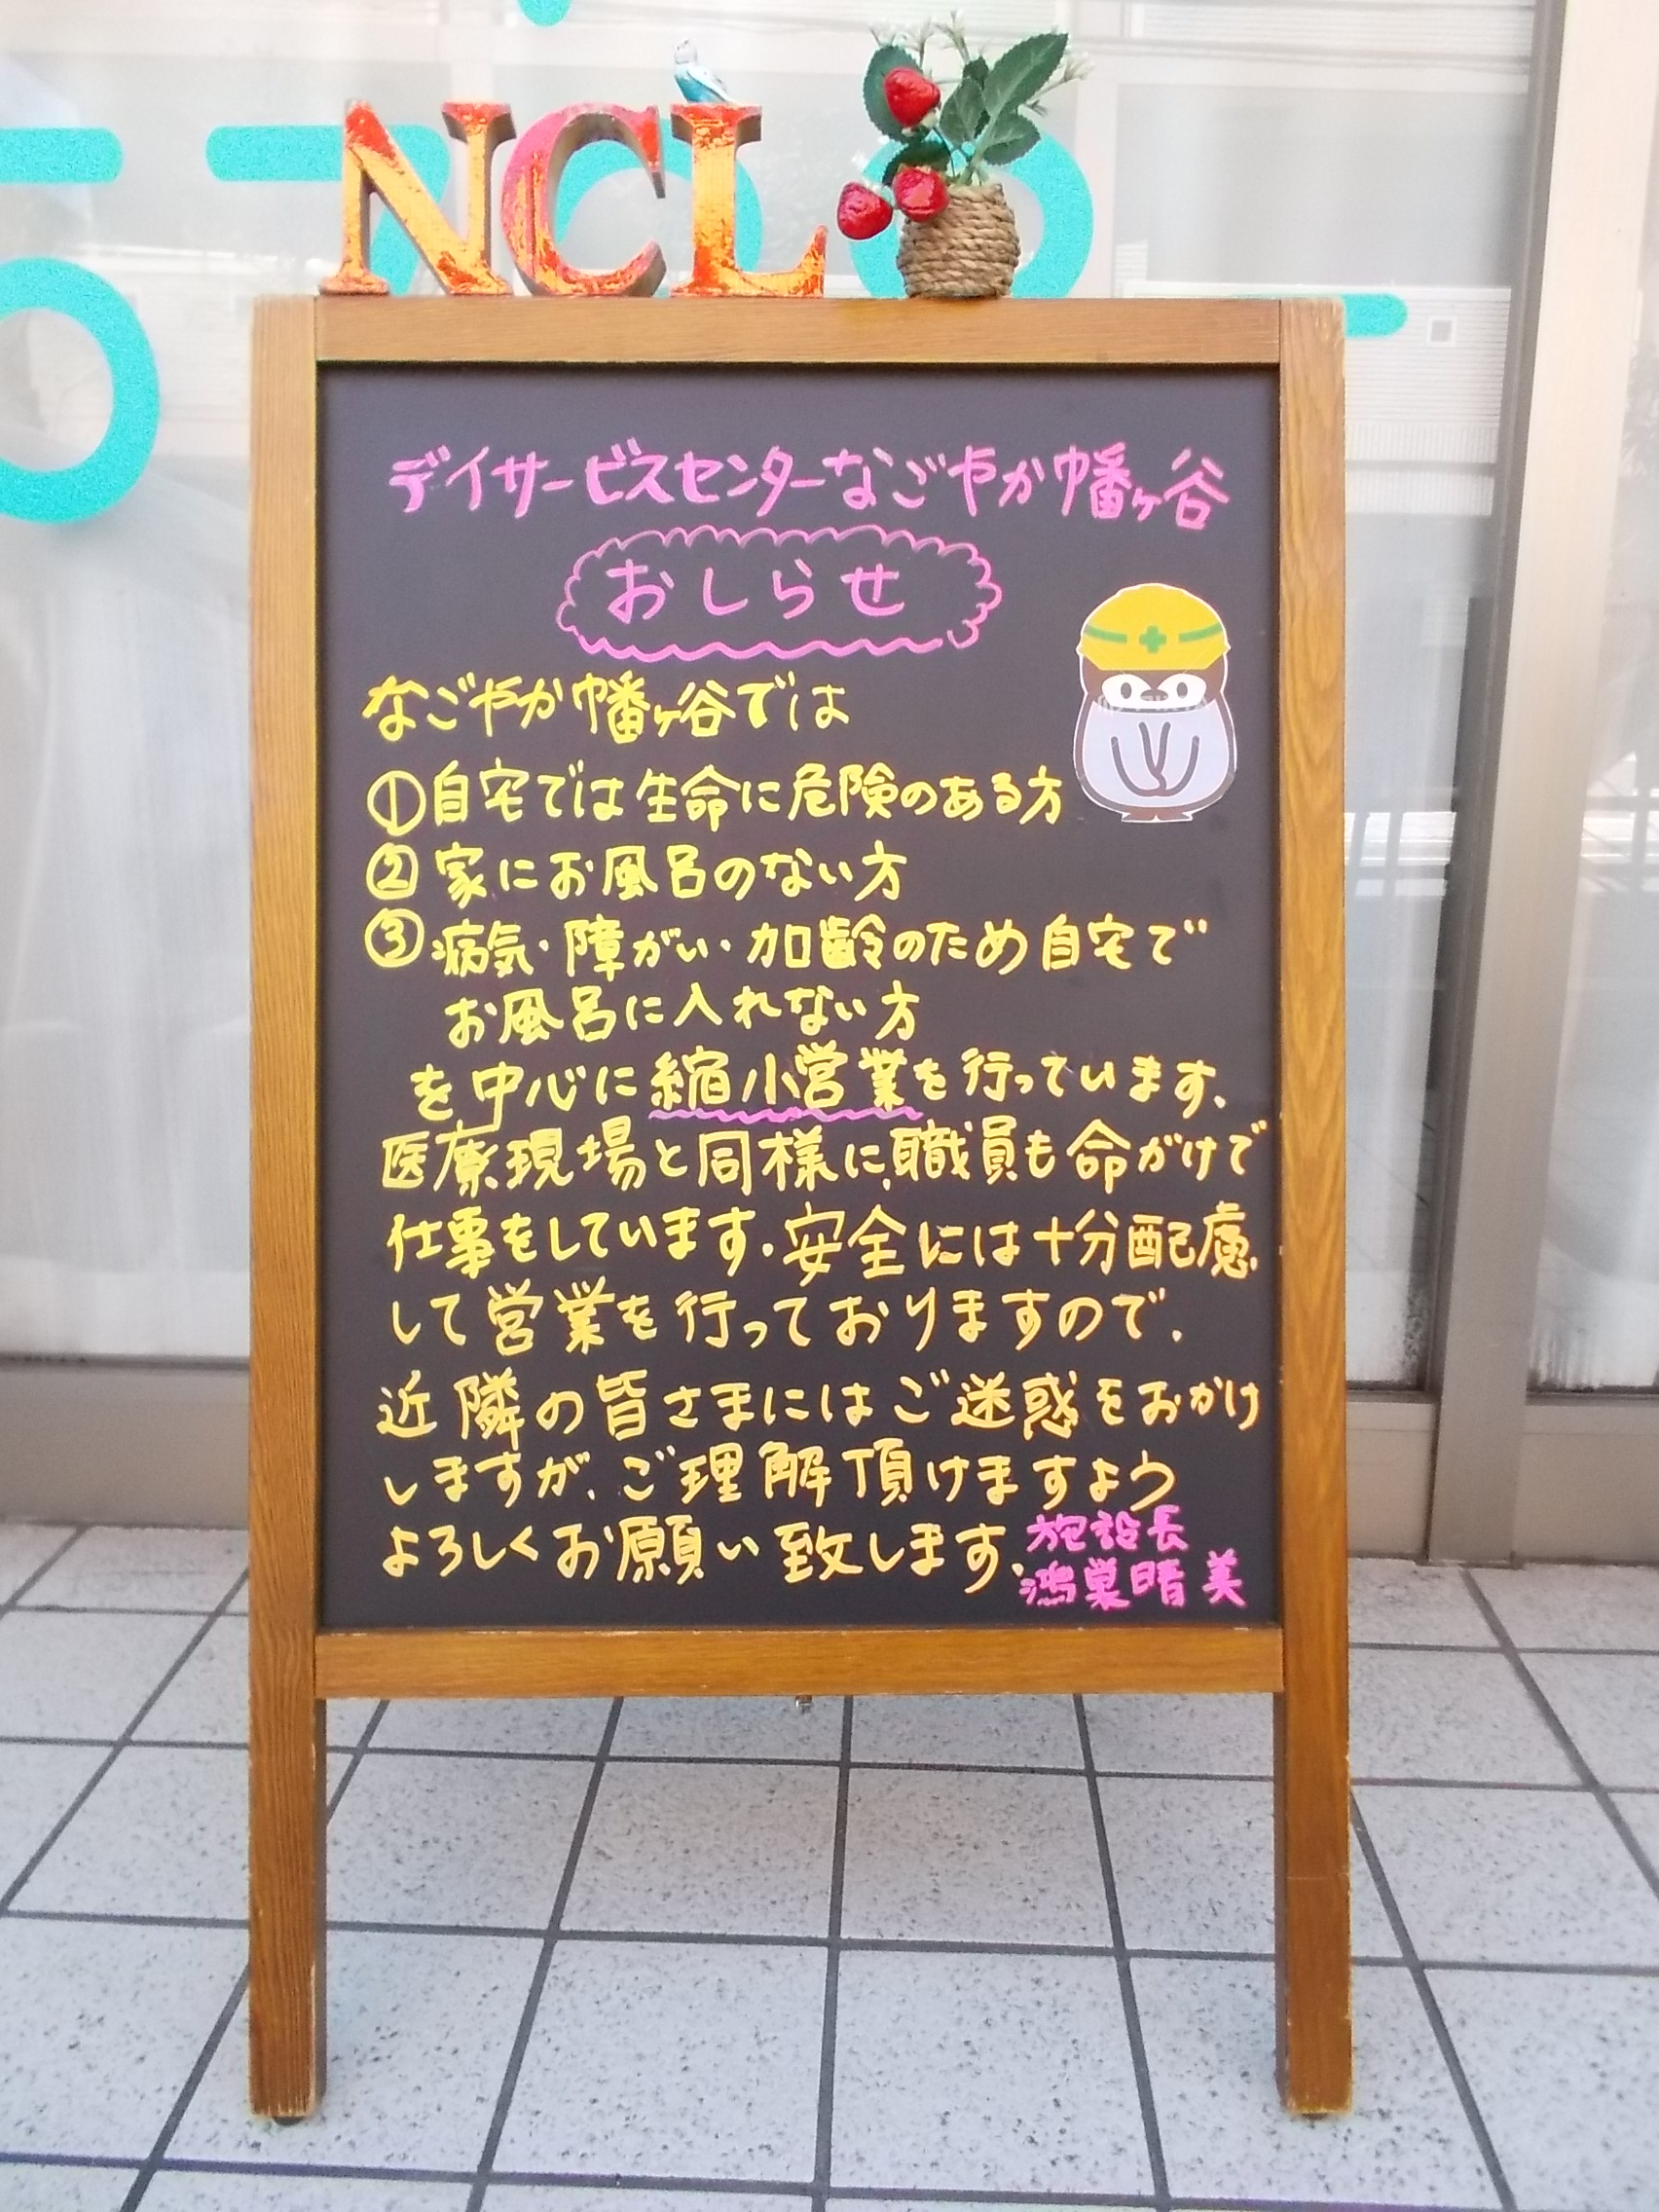 NCL
デイサービスセンターなごやか幡ヶ谷
おしらせ
なごやか幡ヶ谷では
①自宅では生命に危険のある方
②家にお風呂のない方
③病気・障がい・加齢のため自宅で
お風呂に入れない方
を中心に縮小営業を行っています、
医療現場と同様に、職員も命がけで
仕事をしています。安全には十分配慮
して営業を行っておりますので、
近隣の皆さまにはご迷惑をおかけ
しますが、ご理解頂けますよう
よろしくお願い致します。
施設長
鴻巣晴美